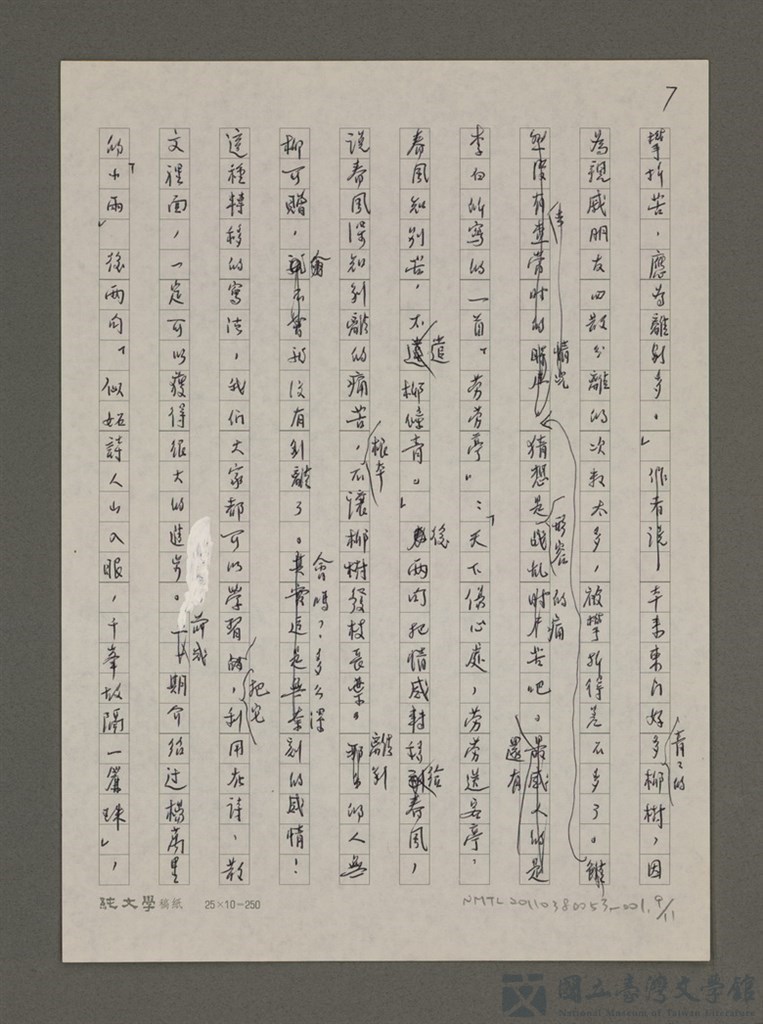 7
攀折苦,應為離別多。」作者說本來東門好多青青的柳樹,因
為親戚朋友四散分離的次數太多,被攀折得差不多了。雖
然沒有走 情況 猜想是形容戰亂時的痛苦吧。還有
李白所寫的一首「勞勞亭」:「天下傷心處,勞勞送客亭,
春風知別苦,不遣柳條青。」後兩句把情感轉移給春風,
說春風深知別離的痛苦,根本不讓柳樹發枝長葉。離別的人無
柳可贈,會 沒有別離了。會嗎?多麼深刻的感情!
這種轉移的寫法,我們大家都可以學習,把它利用在詩、散
文裡面,一定可以獲得很大的進步。前或 期介紹過楊萬里
的「小雨」後兩句「似妬詩人山入眼,千峯故隔一簾珠」,
純文學稿紙 25×10-250
NMTL20110380053-001.9/11
國立臺灣文學館
National Museum of Taiwan Literature